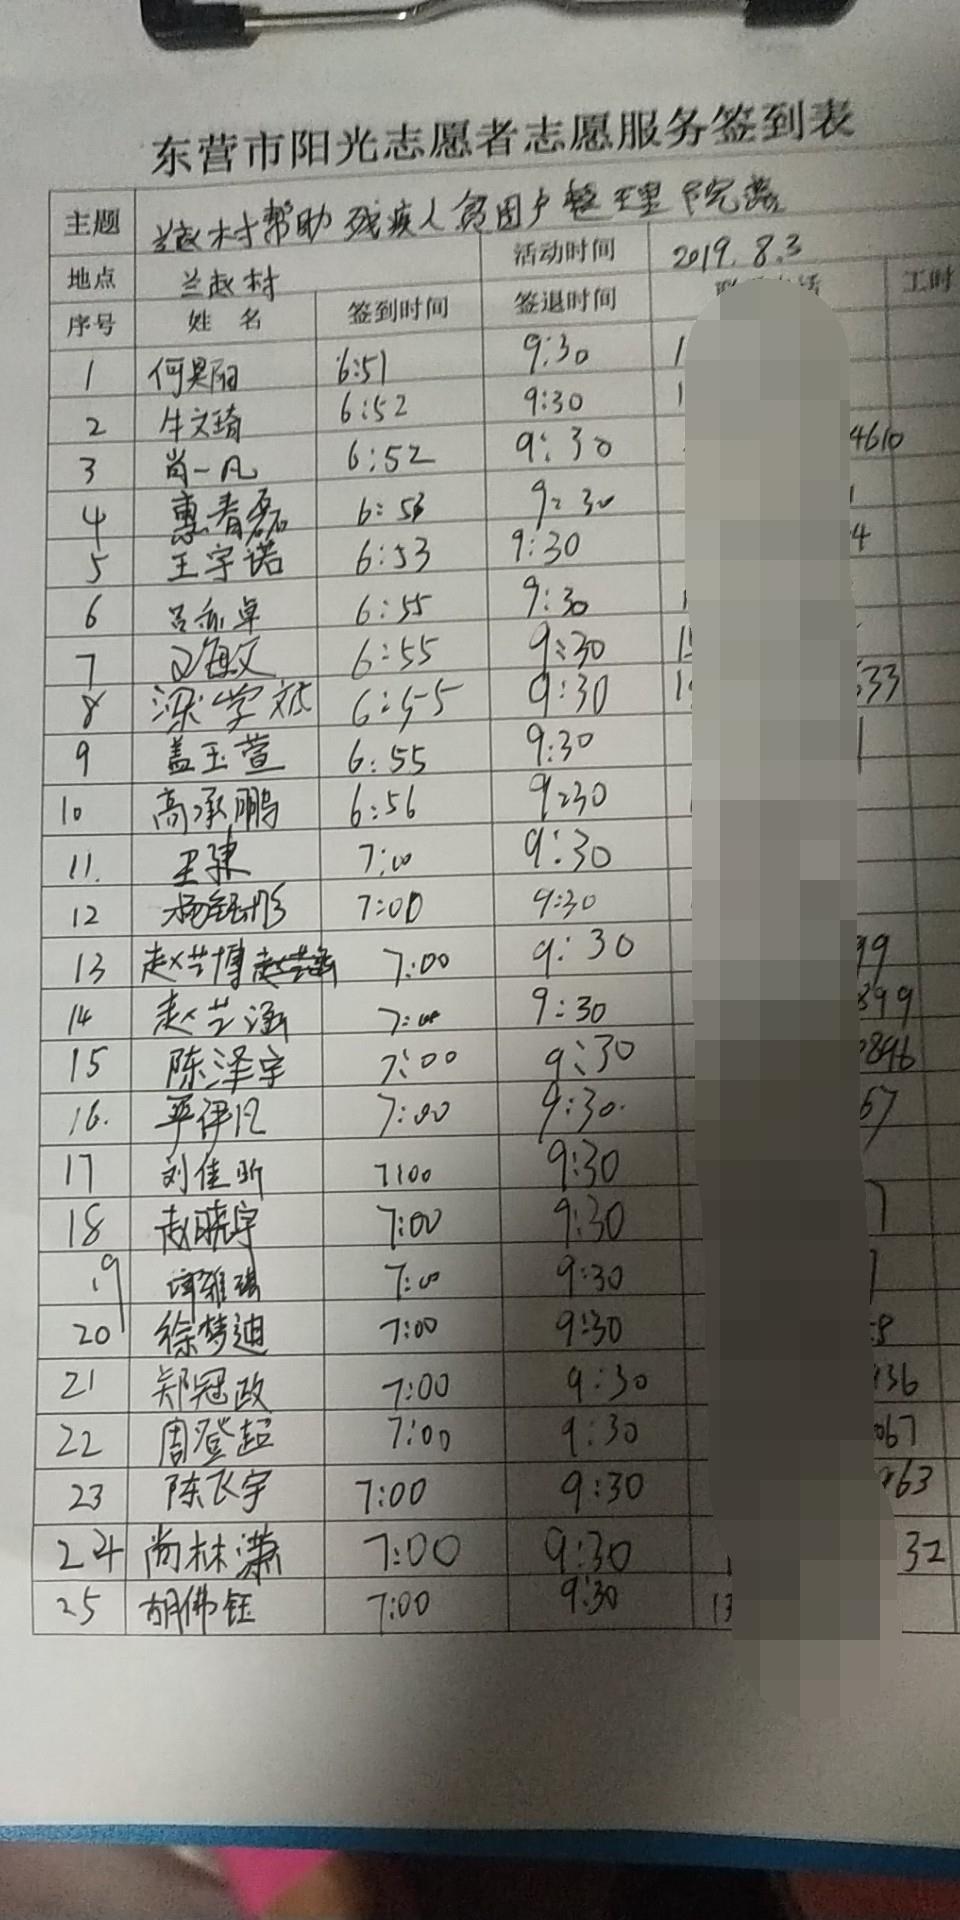 东营市阳光志愿者志愿服务签到表
主题 兰赵村帮助残疾人贫困户整理院落
地点 兰赵村 活动时间 2019.8.3
序号 姓名 签到时间 签退时间 工时
1 何昊阳 6:51 9:30 1
2 牛文琦 6:52 9:30 1
3 尚一凡 6:52 9:30 4610
4 惠青磊 6:53 9:30
5 王宇诺 6:53 9:30 4
6 吕亦卓 6:55 9:30
7 6:55 9:30 15
8 梁学斌 6:55 9:30 1 633
9 盖玉萱 6:55 9:30
10 高承鹏 6:56 9:30
11. 7:00 9:30
12 杨钰彤 7:00 9:30
13 赵艺博 7:00 9:30 99
14 赵艺涵 7:00 9:30 899
15 陈泽宇 7:00 9:30 0896
16. 平伊凡 7:00 9:30. 67
17 刘佳昕 7:00 9:30
18 赵晓宇 7:00 9:30 7
19 7:00 9:30
20 徐梦迪 7:00 9:30 8
21 郑冠政 7:00 9:30 136
22 周登超 7:00 9:30 067
23 陈飞宇 7:00 9:30 963
24 尚林潇 7:00 9:30 32
25 胡佛钰 7:00 9:30 13